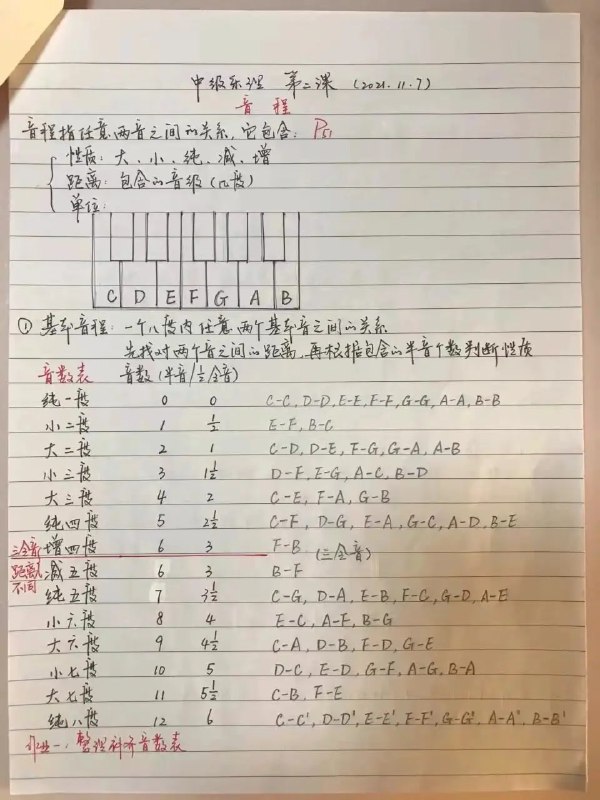 中级乐理 第二课 (2021.11.7)
音程
音程指任意两音之间的关系,它包含: P51
性质: 大、小、纯、减、增
距离: 包含的音级(几度)
单位:
C D E F G A B
① 基本音程: 一个八度内任意两个基本音之间的关系
先找对两个音之间的距离,再根据包含的半音个数判断性质
音数表 音数(半音/½全音)
纯一度 0 0 C-C, D-D, E-E, F-F, G-G, A-A, B-B
小二度 1 ½ E-F, B-C
大二度 2 1 C-D, D-E, F-G, G-A, A-B
小三度 3 1½ D-F, E-G, A-C, B-D
大三度 4 2 C-E, F-A, G-B
纯四度 5 2½ C-F, D-G, E-A, G-C, A-D, B-E
三全音 增四度 6 3 F-B (三全音)
距离不同 减五度 6 3 B-F
纯五度 7 3½ C-G, D-A, E-B, F-C, G-D, A-E
小六度 8 4 E-C, A-F, B-G
大六度 9 4½ C-A, D-B, F-D, G-E
小七度 10 5 D-C, E-D, G-F, A-G, B-A
大七度 11 5½ C-B, F-E
纯八度 12 6 C-C¹, D-D¹, E-E¹, F-F¹, G-G¹, A-A¹, B-B¹
作业一: 整理补齐音数表